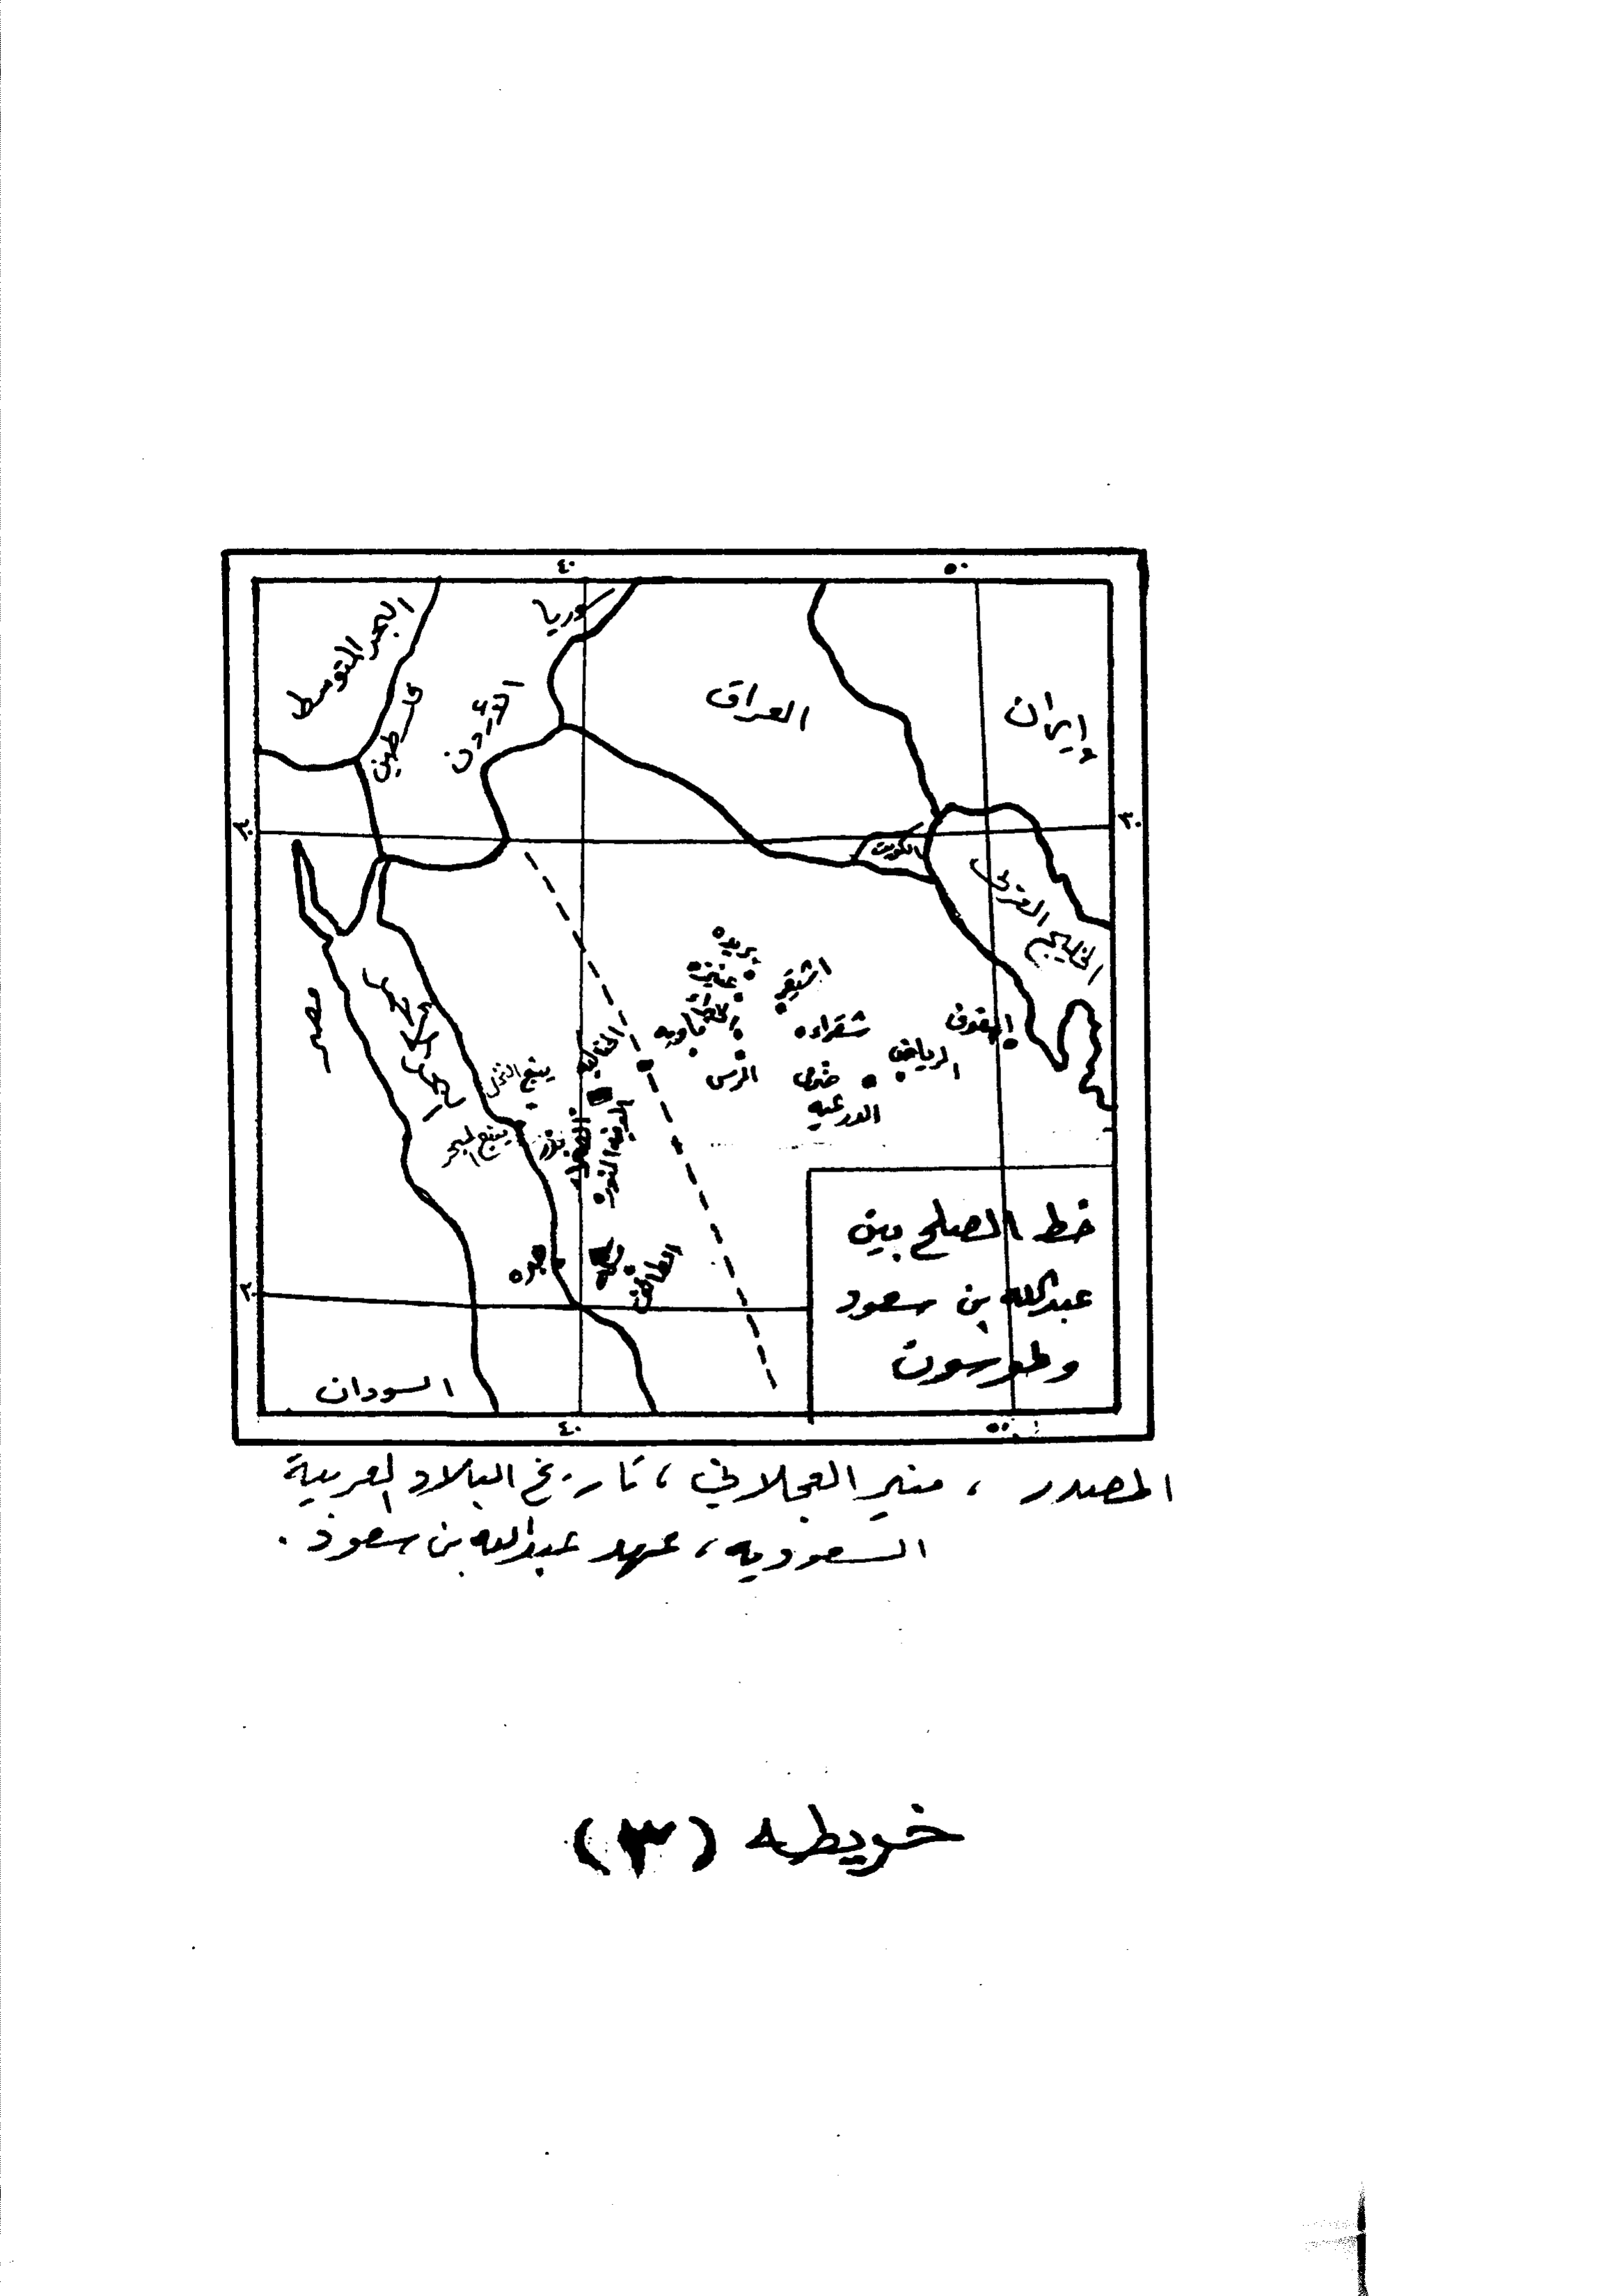 ٤٠
٥٠
البحر المتوسط
فلسطين
الأردن
سوريا
العراق
إيران
٣٠
٣٠
الكويت
الخليج العربي
مصر
البحر الأحمر
بريده
عنيزه
الخبراء
ماويه
الرس
اشيقر
شقراء
ضرمى
الدرعيه
الرياض
الهفوف
الحناكية
ينبع النخل
ينبع البحر
بدر
الصفراء
المدينه المنوره
جده
مكه
الطائف
٢٠
السودان
خط الصلح بين
عبدالله بن سعود
وطوسون
٤٠
٥٠
المصدر ، منير العجلاني ، تاريخ البلاد العربية
السعوديه ، عهد عبدالله بن سعود .
خريطه (٣)